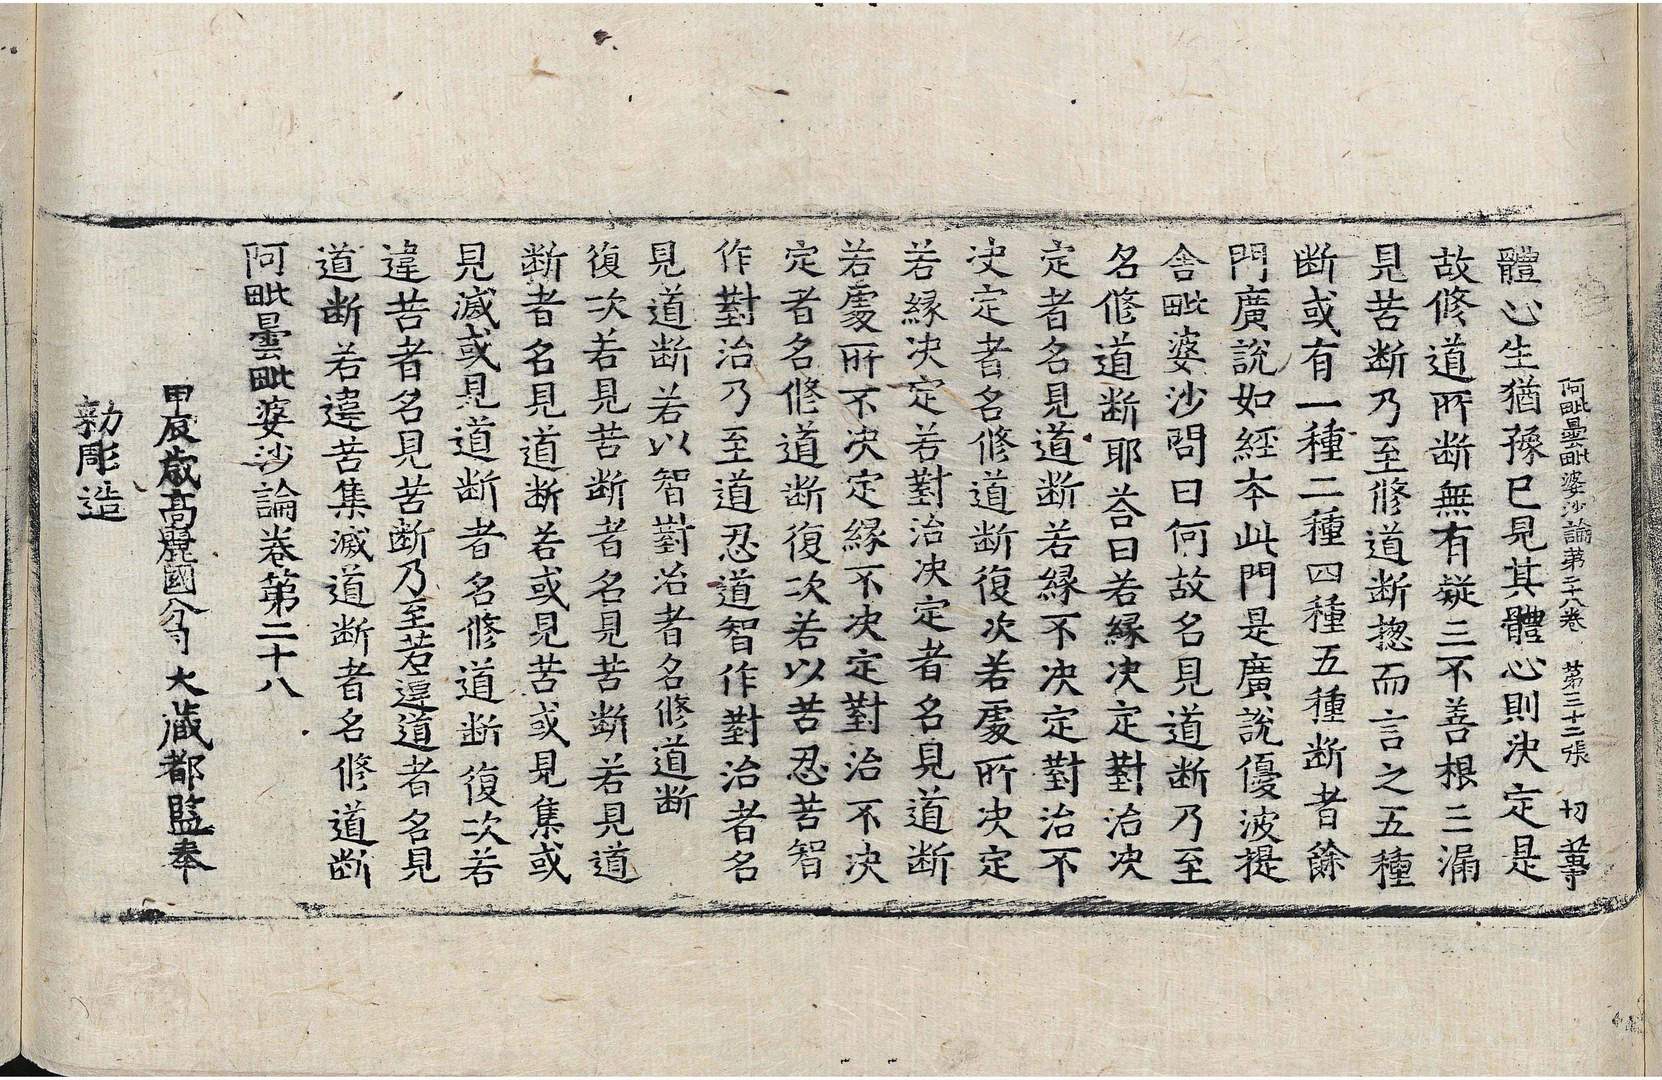 阿毗曇毗婆沙論第二十八卷 第三十二張 切 䒭
體心生猶豫已見其體心則決定是
故修道所斷無有疑三不善根三漏
見苦斷乃至修道斷揔而言之五種
斷或有一種二種四種五種斷者餘
門廣說如經夲此門是廣說優波提
舍毗婆沙問曰何故名見道斷乃至
名修道斷耶荅曰若緣决定對治决
定者名見道斷若緣不决定對治不
决定者名修道斷復次若處所决定
若緣决定若對治决定者名見道斷
若處所不决定緣不决定對治不决
定者名修道斷復次若以苦忍苦智
作對治乃至道忍道智作對治者名
見道斷若以智對治者名修道斷
復次若見苦斷者名見苦斷若見道
斷者名見道斷若或見苦或見集或
見滅或見道斷者名修道斷復次若
違苦者名見苦斷乃至若違道者名見
道斷若違苦集滅道斷者名修道斷
阿毗曇毗婆沙論卷第二十八
甲辰歲高麗國分司大藏都監奉
勅彫造